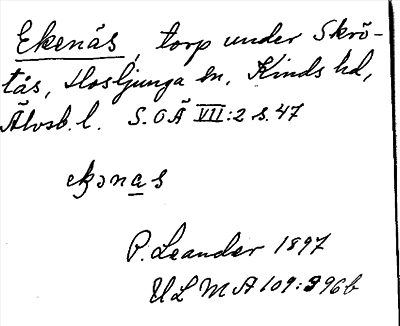 Ekenäs, torp under Skrö-
tås, Hosljunga sn, Kinds hd,
Älvsb. l. S.O.Ä VII:2 s. 47
ekɔnas
P. Leander 1897
ULMA 109:396b